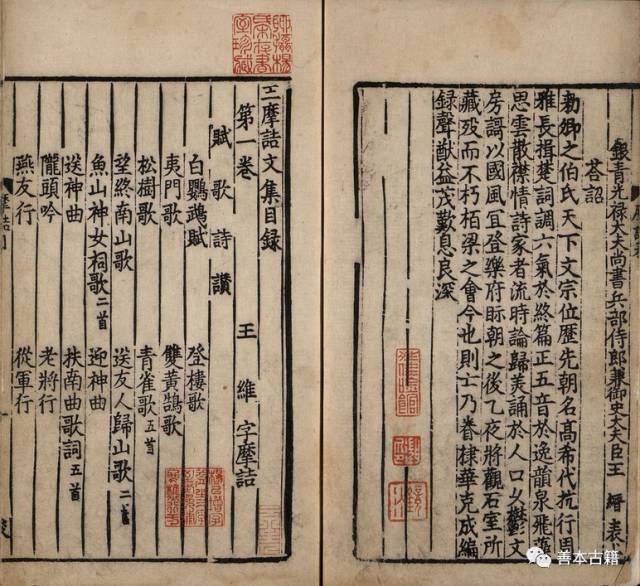 銀青光禄大夫尚書兵部侍郎兼御史大夫臣王 縉表
荅詔
勑卿之伯氏天下文宗位歷先朝名髙希代抗行周
雅長揖楚詞調六氣於終篇正五音於逸韻泉飛藻
思雲散襟情詩家者流時論歸美誦於人口久欝文
房謌以國風宜登樂府眎朝之後乙夜將觀石室所
藏歿而不朽栢梁之會今也則亡乃眷棣華克成編
録聲猷益茂歎息良深
王摩詰文集目録
第一卷 王 維 字摩詰
賦 歌 詩 讃
白鸚鵡賦 登樓歌
夷門歌 雙黃鵠歌
松樹歌 青雀歌五首
望終南山歌 送友人歸山歌二首
魚山神女祠歌二首 迎神曲
送神曲 扶南曲歌詞五首
隴頭吟 老將行
燕友行 從軍行
善本古籍